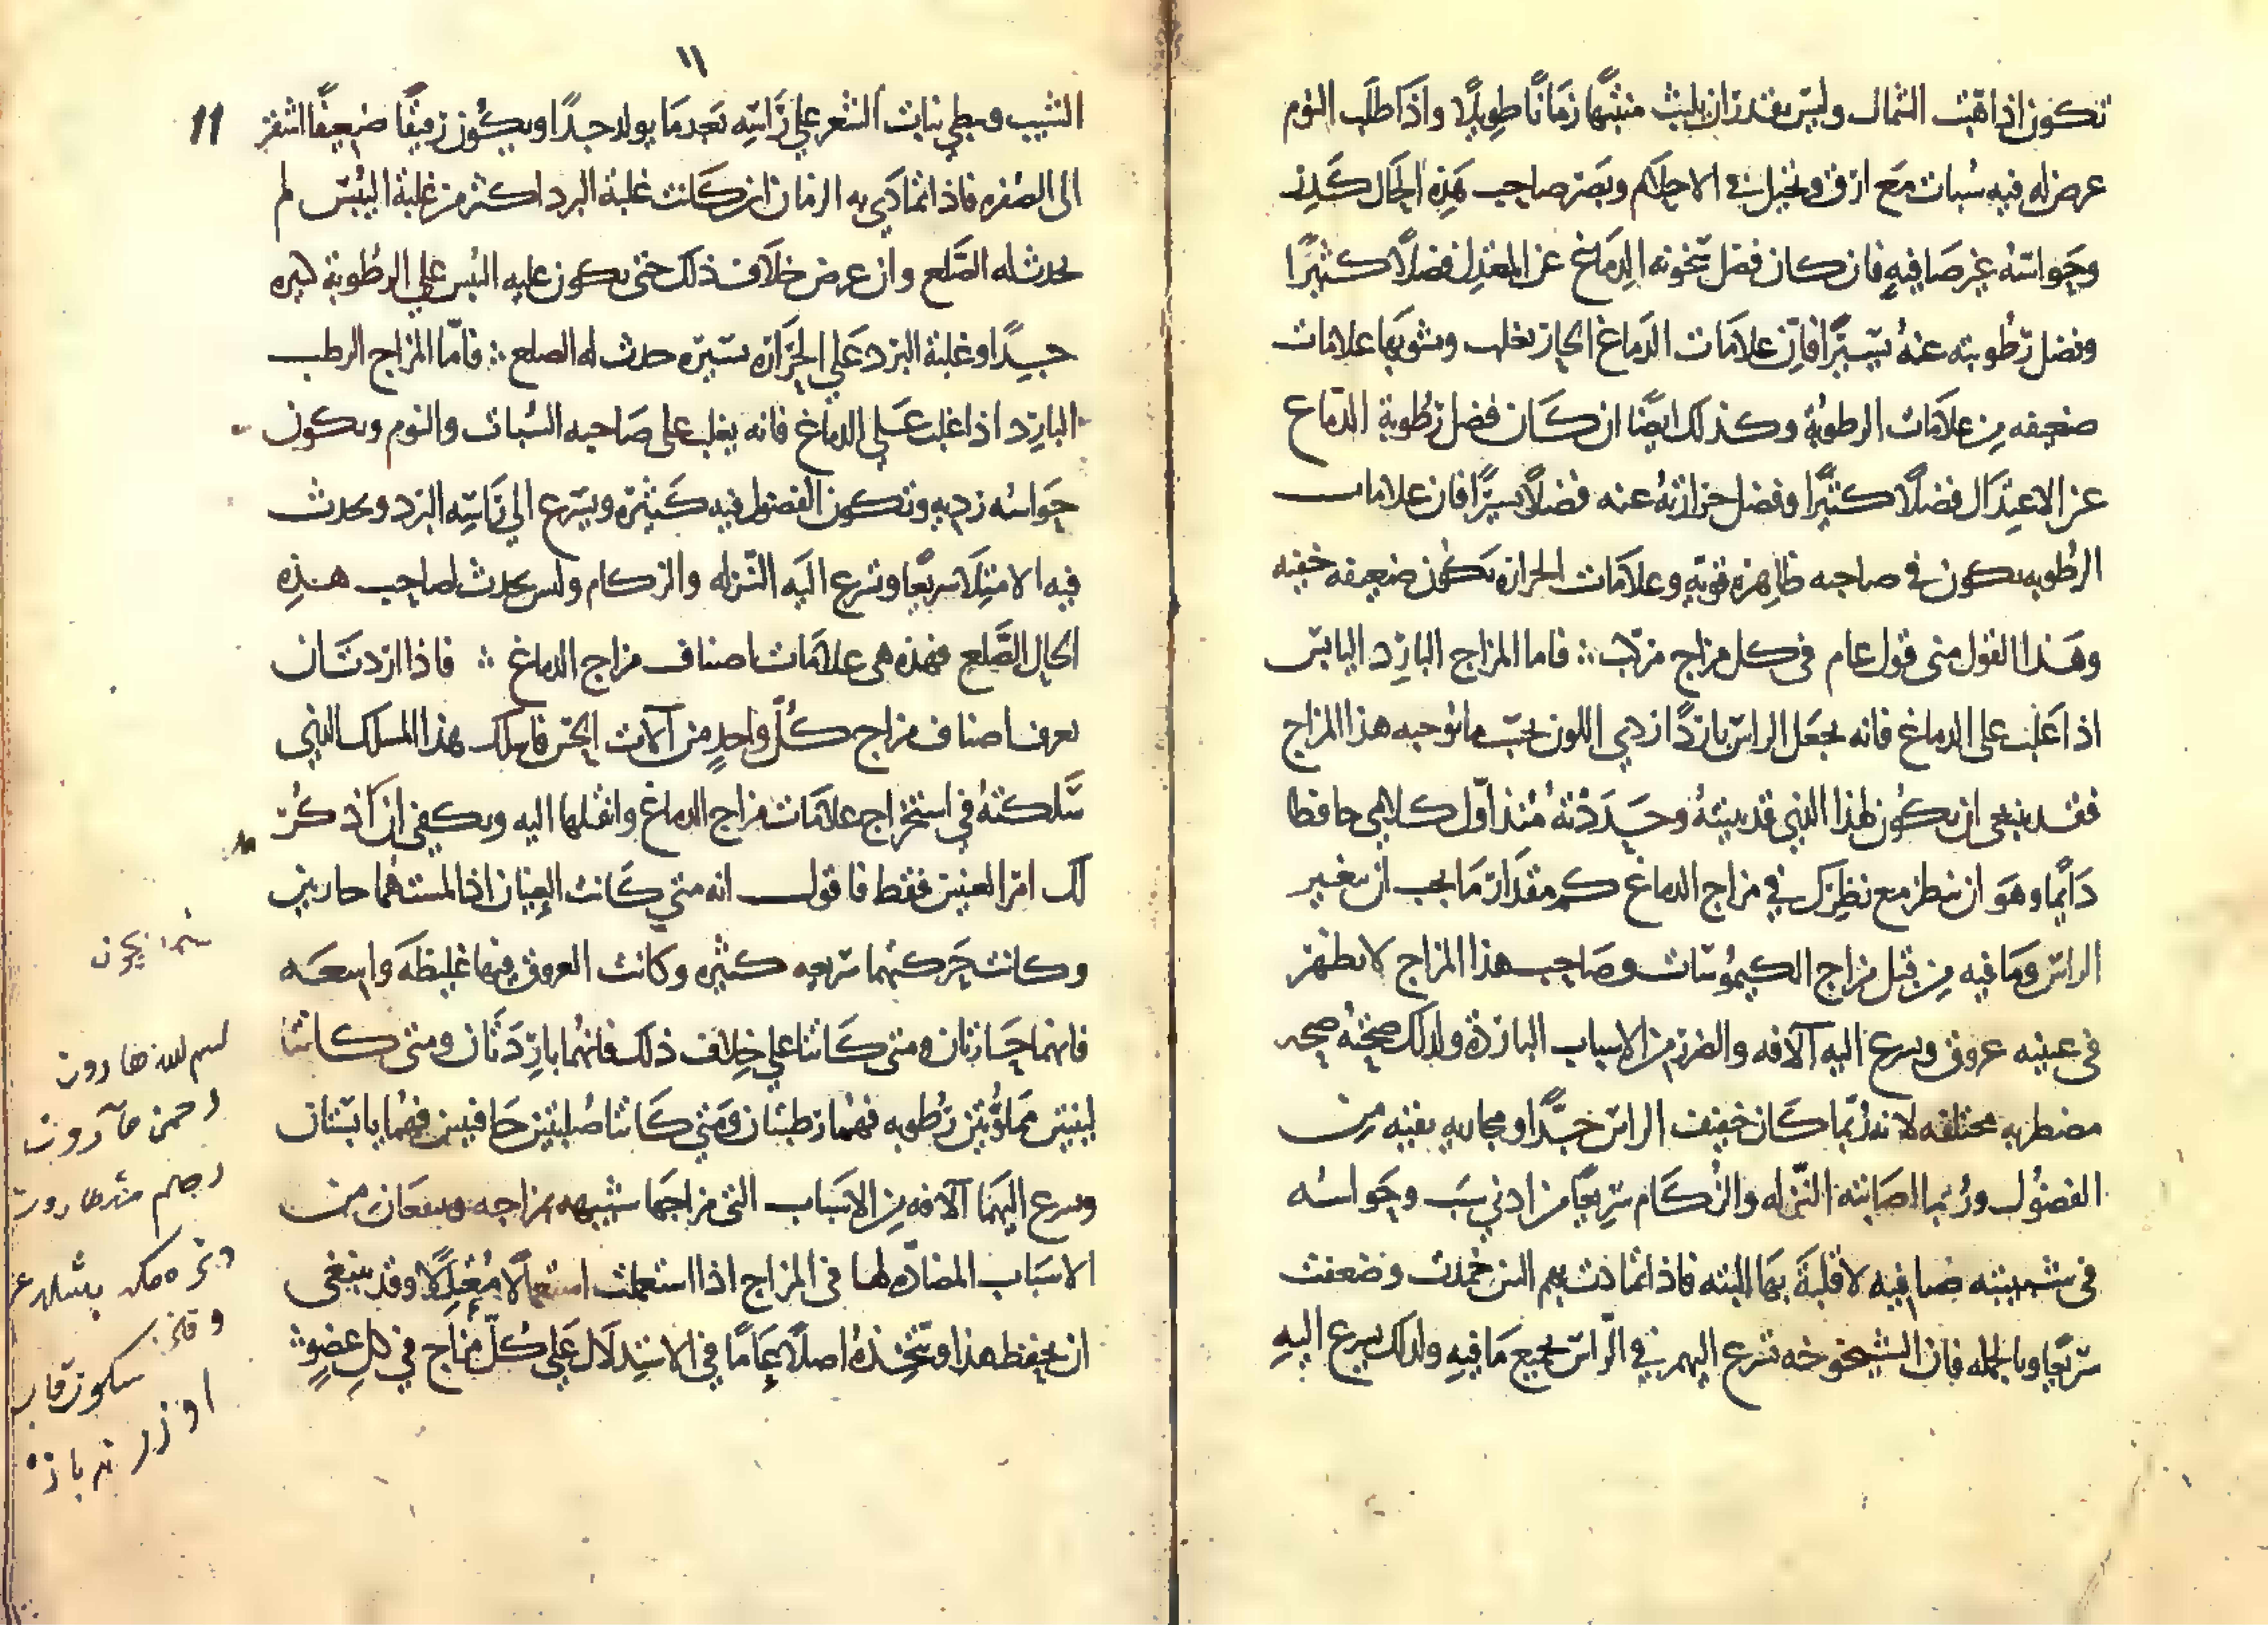 تكون اذا هبت الشمال وليس يقدر ان يلبث منتبها زمانًا طويلًا واذا طلب النوم
عرض له فيه سُبات مع ارق وتخيل في الاحلام وبصر صاحب هَذِه الحَال كَدِر
وحَواسّه غير صَافيه فان كان فضل سخونه الدِماغ عن المعتدل فضلًا كثيرًا
وفضل رُطوبته عنهُ يسيرًا فاِن علامَات الدَماغ الحار تغلب وتشوبها علامات
ضعيفه مِن علامَات الرطوبُة وكذلك ايضًا ان كَان فضل رُطوبة الدماع
عن الاعتِدَال فضلًا كثيرًا وفضل حرارتهُ عنه فضلًا يسيرًا فان علامات
الرطُوبه يكون في صاحبه ظاهِرَه قويّه وعلامَات الحراره تكُون ضعيفه خفيه
وهَذا القول مني قول عام في كل مزاج مركب ∴ فاما المزاج البارِد اليابس
اذا غَلبَ على الدماغ فانه يجعَل الراس باردًا ردي اللون بحسب ما يوجبه هذا المزاج
فقد ينبغي ان يكُون لهذا الذي قد بينتهُ وحَدَدْتهُ مُنذ اوّل كلامي حافظا
دَايمًا وهوَ ان تنظر مع نظرِك في مزاج الدماغ كم مقدَار مَا يجب ان يتغير
الراس ومَا فيه مِن قبل مزاج الكيمُوسَات وصَاحِب هذا المزاج لا يظهر
في عينيه عروق ويسرع اليه الآفه والضرر من الاسباب البارِدة ولذلك صحّتهُ صحه
مضطربه مختلفه لانه رُبّما كَان خفيف الراس جدًّا ومجاريه نقيّه من
الفضُول ورُبما اصَابته النّزله والزُكَام سَرِيعًا من ادني سَبَب وحَواسُه
في شبيبته صَافيه لا قَلبَةَ بهَا البته فاذا تمادَت بهم السن خمدت وضعفت
سَريعًا وبالجمله فان الشيخوخه تسرع اليهم في الرّاس لجميع مَا فيهِ ولذلك يسرع اليهِ
١١
11
الشيب ويبطي نبات الشعر على رَاسِه بَعد مَا يولد جدًا ويكُون رقيقًا ضعيفًا اشقر
الى الصُفره فاذا تمادَي به الزمان ان كَانت غلبة البرد اكثر من غلبة اليُبس لم
يحدث له الصَّلع وان عرض خلاف ذلك حتى يكون غلبه اليُبس علي الرطُوبة كثيره
جدًا وغلبة البرد عَلي الحَرَارَه يسَيرَه حدث له الصلع ∴ فامّا المزاج الرطب
البارِد اذا غلب عَلي الدماغ فانه يغلب على صَاحبه السُبات والنوم ويكون
حوَاسُه ردِيه وتكون الفضول فيه كَثيرَة ويسرع الي رَاسِه البَرد ويحدث
فيه الامتلَا سريعًا وتسرع اليَه النّزله والزكام وليس يحدث لصاحب هذِه
الحَال الصَّلع فهذه هي علامَات اصناف مزاج الدماغ ∴ فاذا اردتَ ان
تعرف اصناف مزاج كُلّ واحدٍ من آلات الحِس فاسلك هذا المسلك الذي
سَلكتهُ في استخراج علامَات مزاج الدماغ وانقلها اليه ويكفي ان اَذكُر
لك امر العينين فقط فاقول انه متي كَانت العينان اذا لمستهما حارتين
وكانت حَركتهما سَريعه كثيره وكانت العروق فيهما غليظَه واسِعَه
فانهما حَارتان ومتى كَانتا علي خِلاف ذلك فانهُما بارِدَتان ومتى كانتا
لينتين مملوُّتين رُطوبه فهُما رَطبتان ومَتي كَانتا صُلبتين جَافيتين فهُما يابسَتان
ويسرع اليهمَا الآفه مِن الاسَبَاب التي مزاجهَا شبيهه بمزاجه وينتفعَان من
الاسَبَاب المضادّه لهَا في المزاج اذا استعملت استعمالًا مُعتدِلًا وقد ينبغي
ان يحفظ هذا ويتّخِذهُ اصلًا عَامًا في الاستِدلَال عَلي كُلّ مزاج في كل عضوٍ ∴